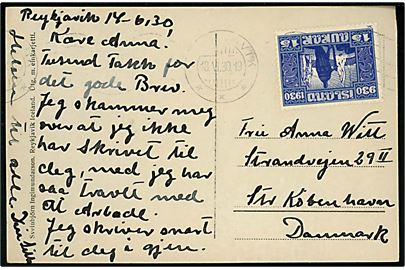 Reykjavik 14-6,30!
Kære Anna!
Tusind Takk for
det gode Brev.
Jeg skammer meg
over at jeg ikke
har skrivet til
deg, med jeg har
saa travlt med
at Arbade.
Jeg skriver snart
til deg igjen.
til alle
Sveinbjörn Ingimundarson. Reykjavik Iceland. Útg. m. einkarjetti.
VIK
VI.30.19
15 AURAR 15
ISLAND
930 1930
Frie Anna Witt
Strandvejen 29 II
Str København
Danmark